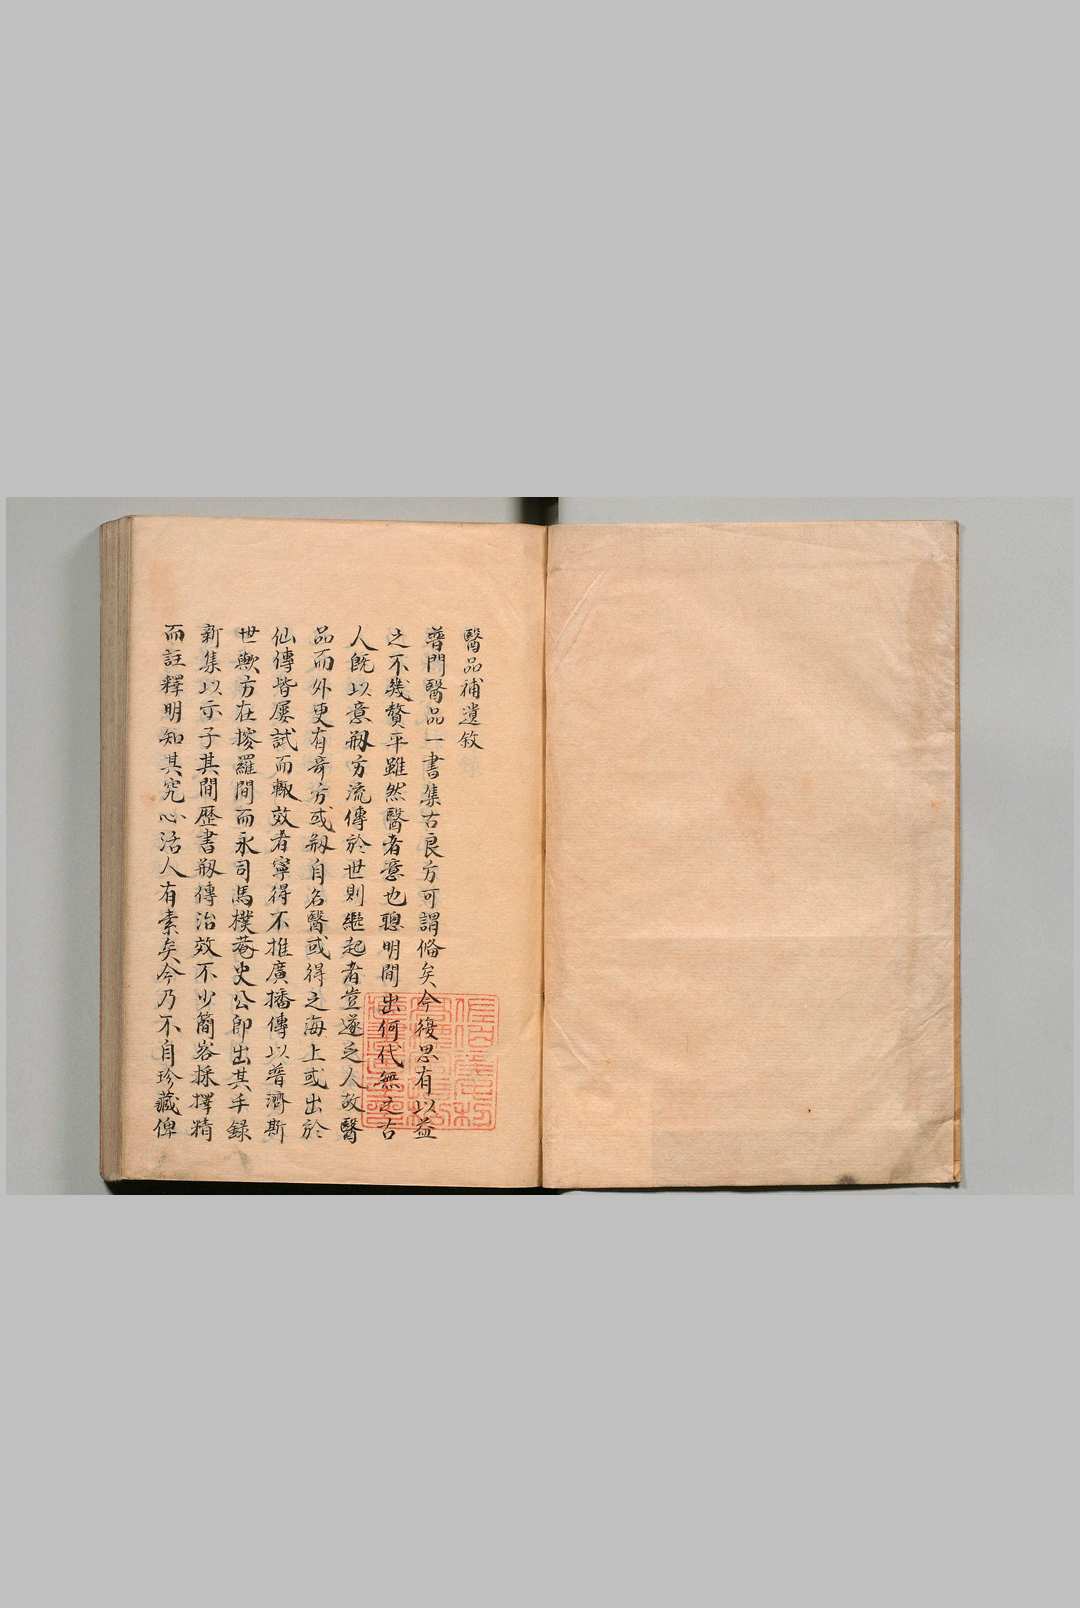 醫品補遺敘
普門醫品一書集古良方可謂俻矣今復思有以益
之不幾贅乎雖然醫者意也聰明間出何代無之古
人旣以意剏方流傳於世則繼起者豈遂乏人故醫
品而外更有竒方或剏自名醫或得之海上或出於
仙傳皆屡試而輙效者寧得不推廣播傳以普濟斯
世歟方在搜羅間而永司馬樸菴史公卽出其手錄
新集以示予其間歷書剏傳治效不少簡畧採擇精
而註釋明知其究心活人有素矣今乃不自珍藏俾